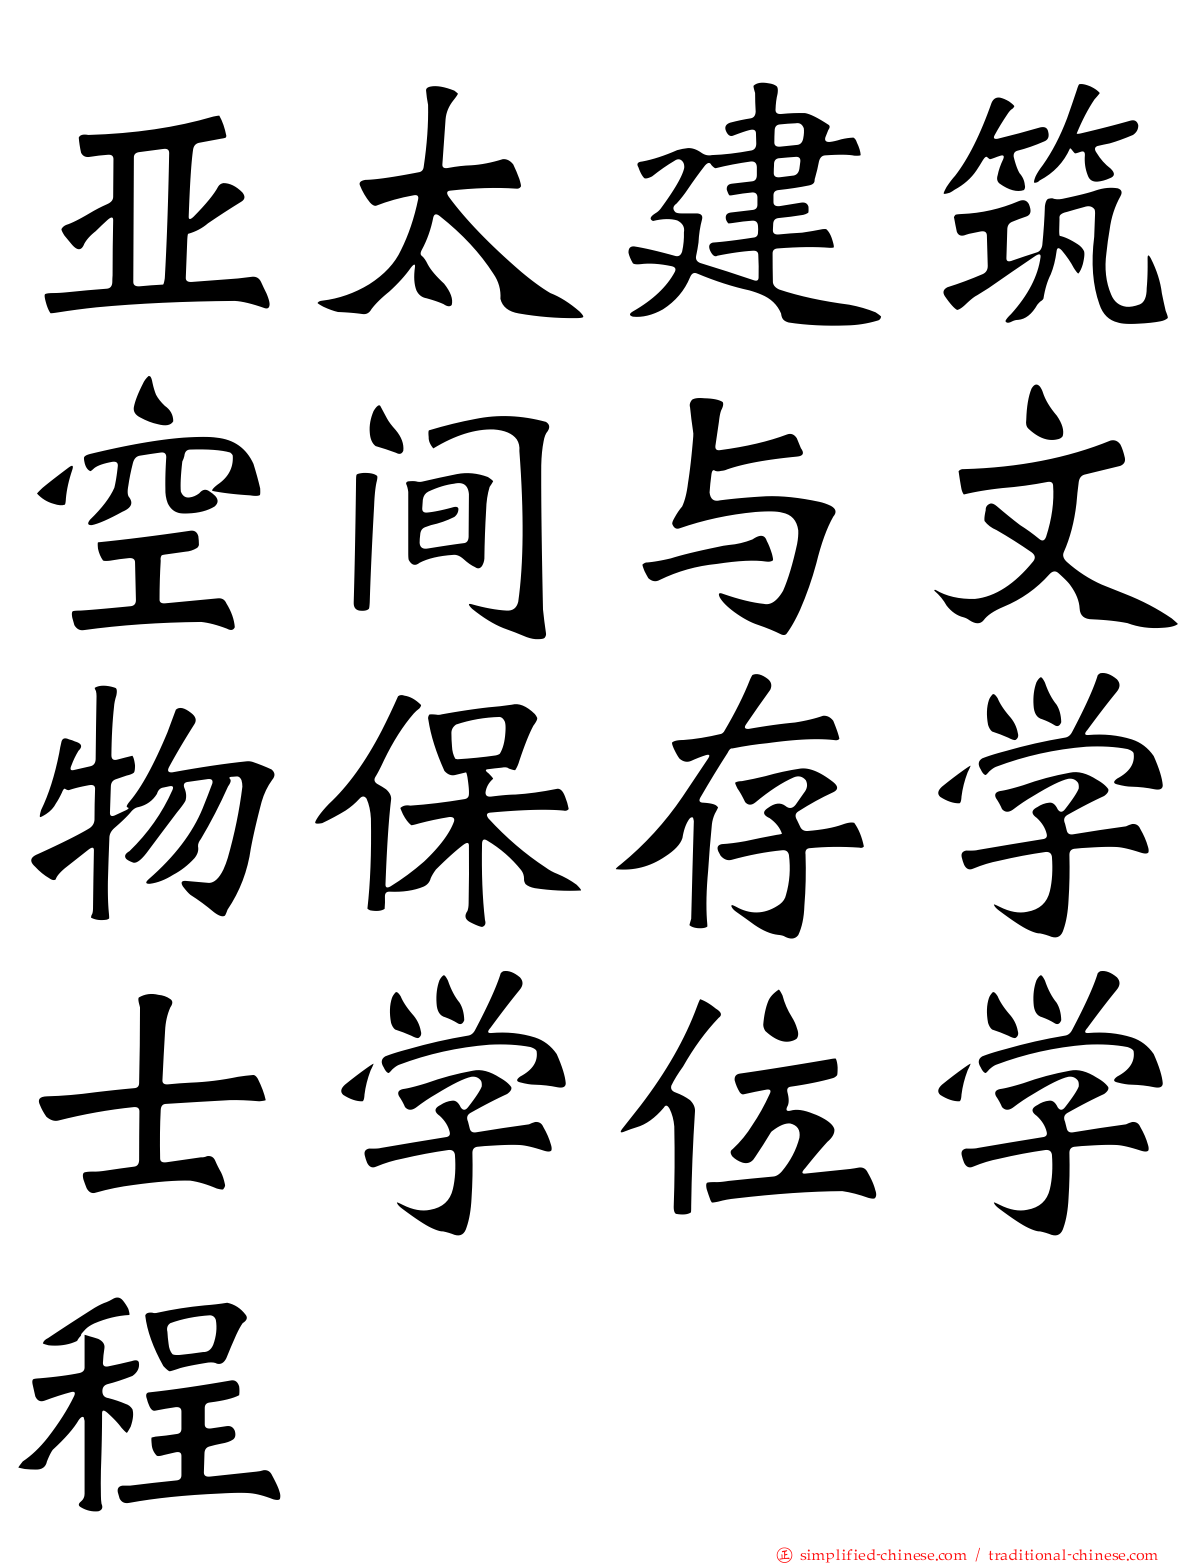 亚太建筑
空间与文
物保存学
士学位学
程
正 simplified-chinese.com / traditional-chinese.com